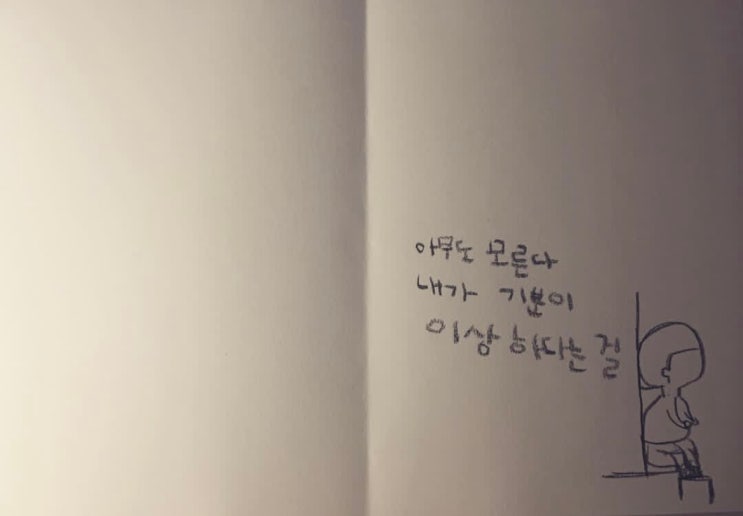 아무도 모른다
내가 기분이
이상하다는 걸